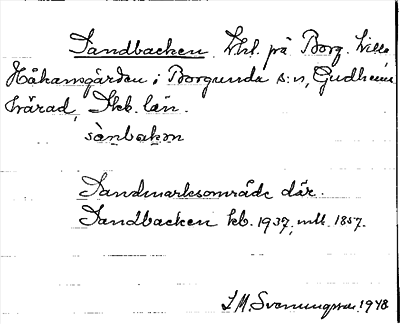 Sandbacken. Lhl. på Borg. Lilla
Håkansgården i Borgunda s:n, Gudhems
härad, Skb. län.
sànbakən
Sandmarksområde där.
Sandbacken kb. 1937, mtl. 1857.
S. M. Svenungsson 1948